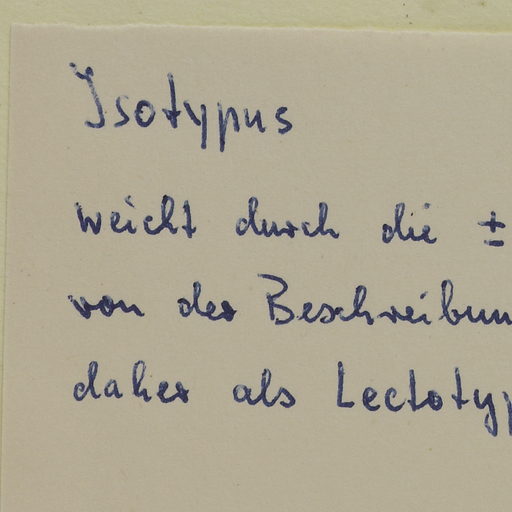 Isotypus
weicht durch die ±
von der Beschreibun
daher als Lectotyp